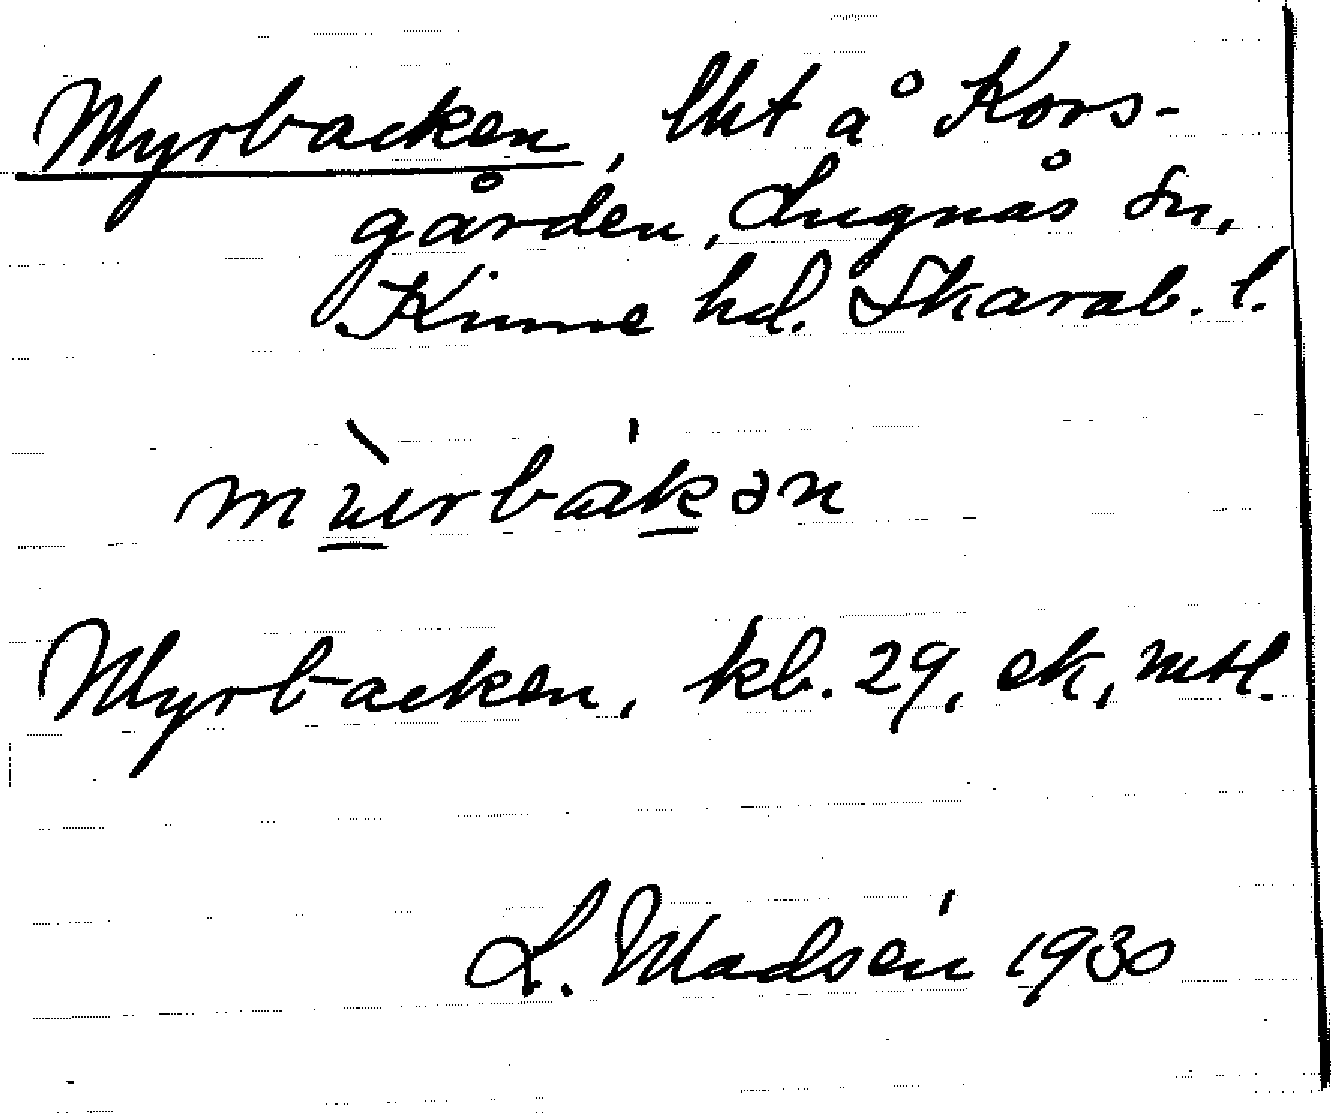 Myrbacken, lht å Kors-
gården, Lugnås sn,
Kinne hd. Skarab. l.
Myrbacken, kb. 29, ek, mtl.
L. Madsén 1930